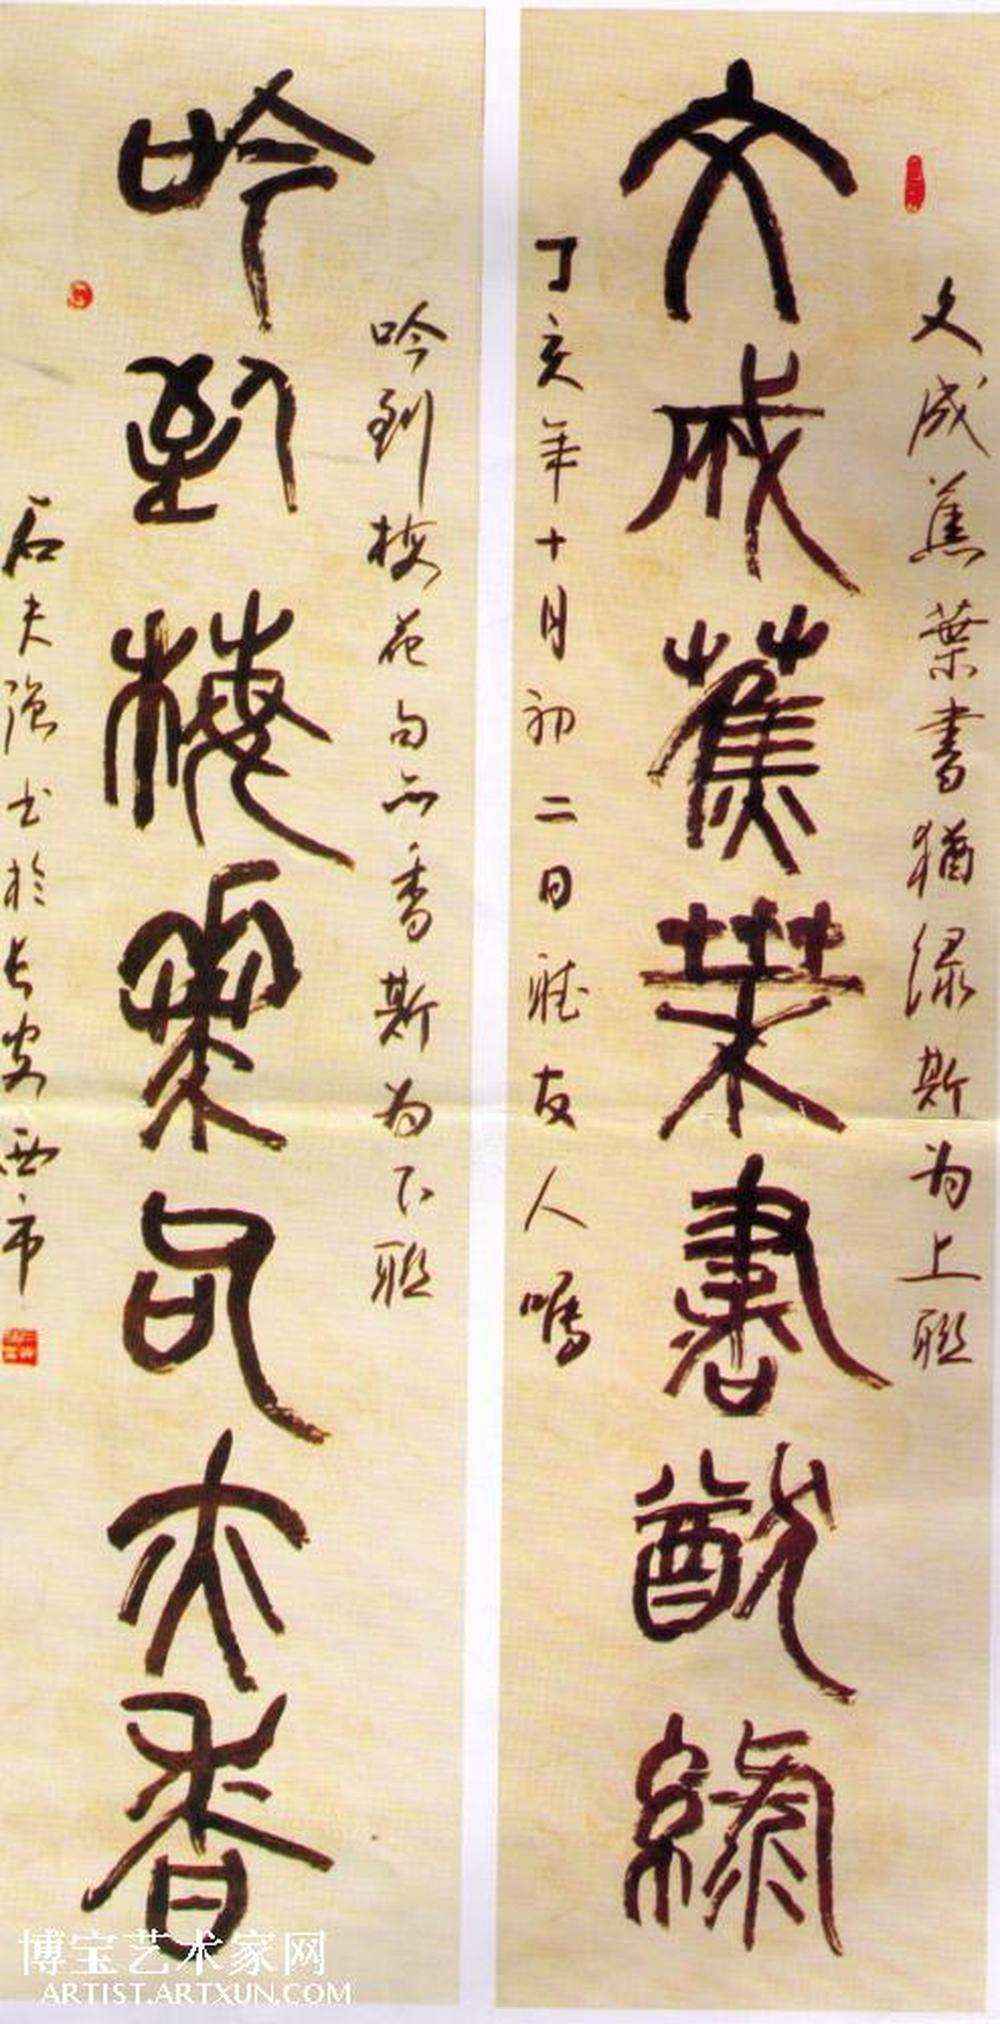 文成蕉葉書猶綠斯为上聯
文成蕉葉書猶綠
丁亥年十月初二日 友人囑
吟到梅花句亦香斯为下聯
吟到梅花句亦香
石夫强书於长安西市
博宝艺术家网
ARTIST.ARTXUN.COM